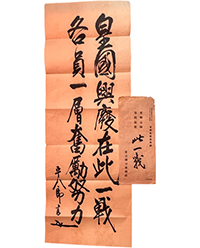 皇國興廢在此一戰
各員一層奮勵努力
平八郎書
此一戰